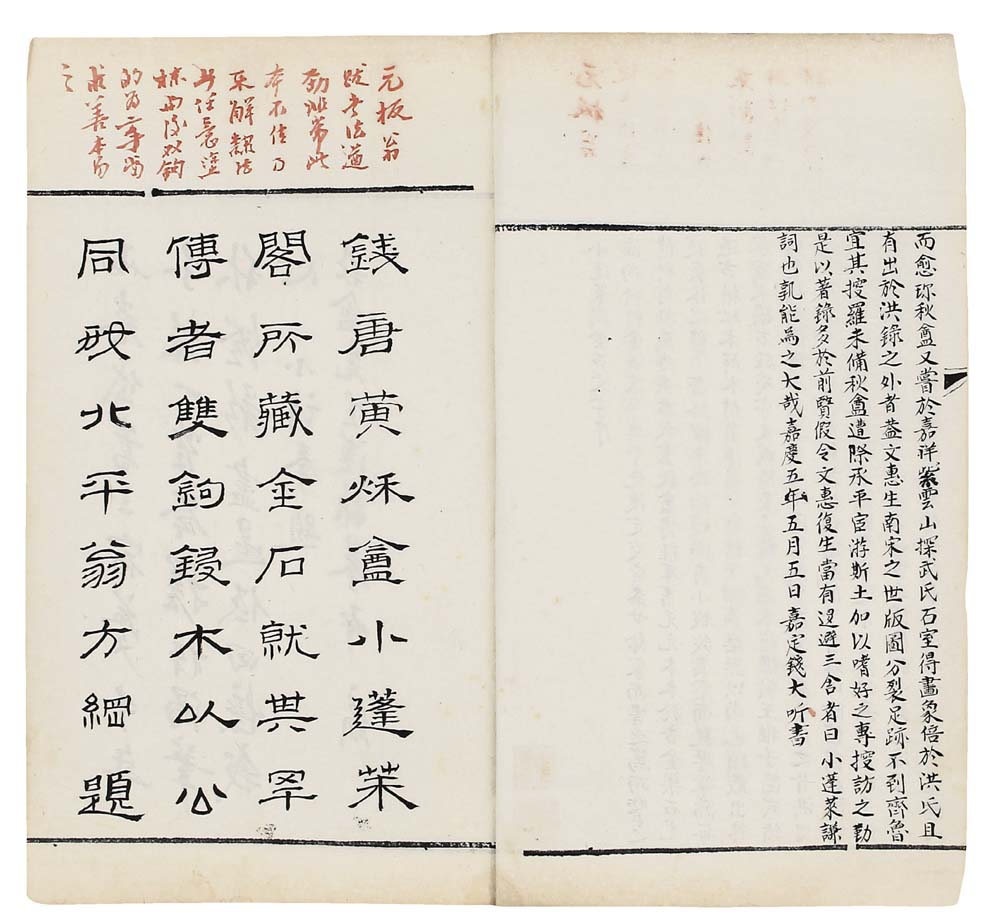 而愈珎秋盦又嘗於嘉祥紫雲山探武氏石室得畫象倍於洪氏且
有出於洪錄之外者葢文惠生南宋之世版圖分裂足跡不到齊魯
宜其搜羅未備秋盦遭際承平宦游斯土加以嗜好之專搜訪之勤
是以著錄多於前賢假令文惠復生當有退避三舍者曰小蓬萊謙
詞也孰能為之大哉嘉慶五年五月五日嘉定錢大昕書
元板翁
跋書法遒
勁非常此
本不佳乃
解法
任意塗
抹而後双鉤
的為二手當
求善本
之
錢唐黃秌盦小蓬萊
閣所藏金石就其罕
傳者雙鉤鋟木以公
同好北平翁方綱題